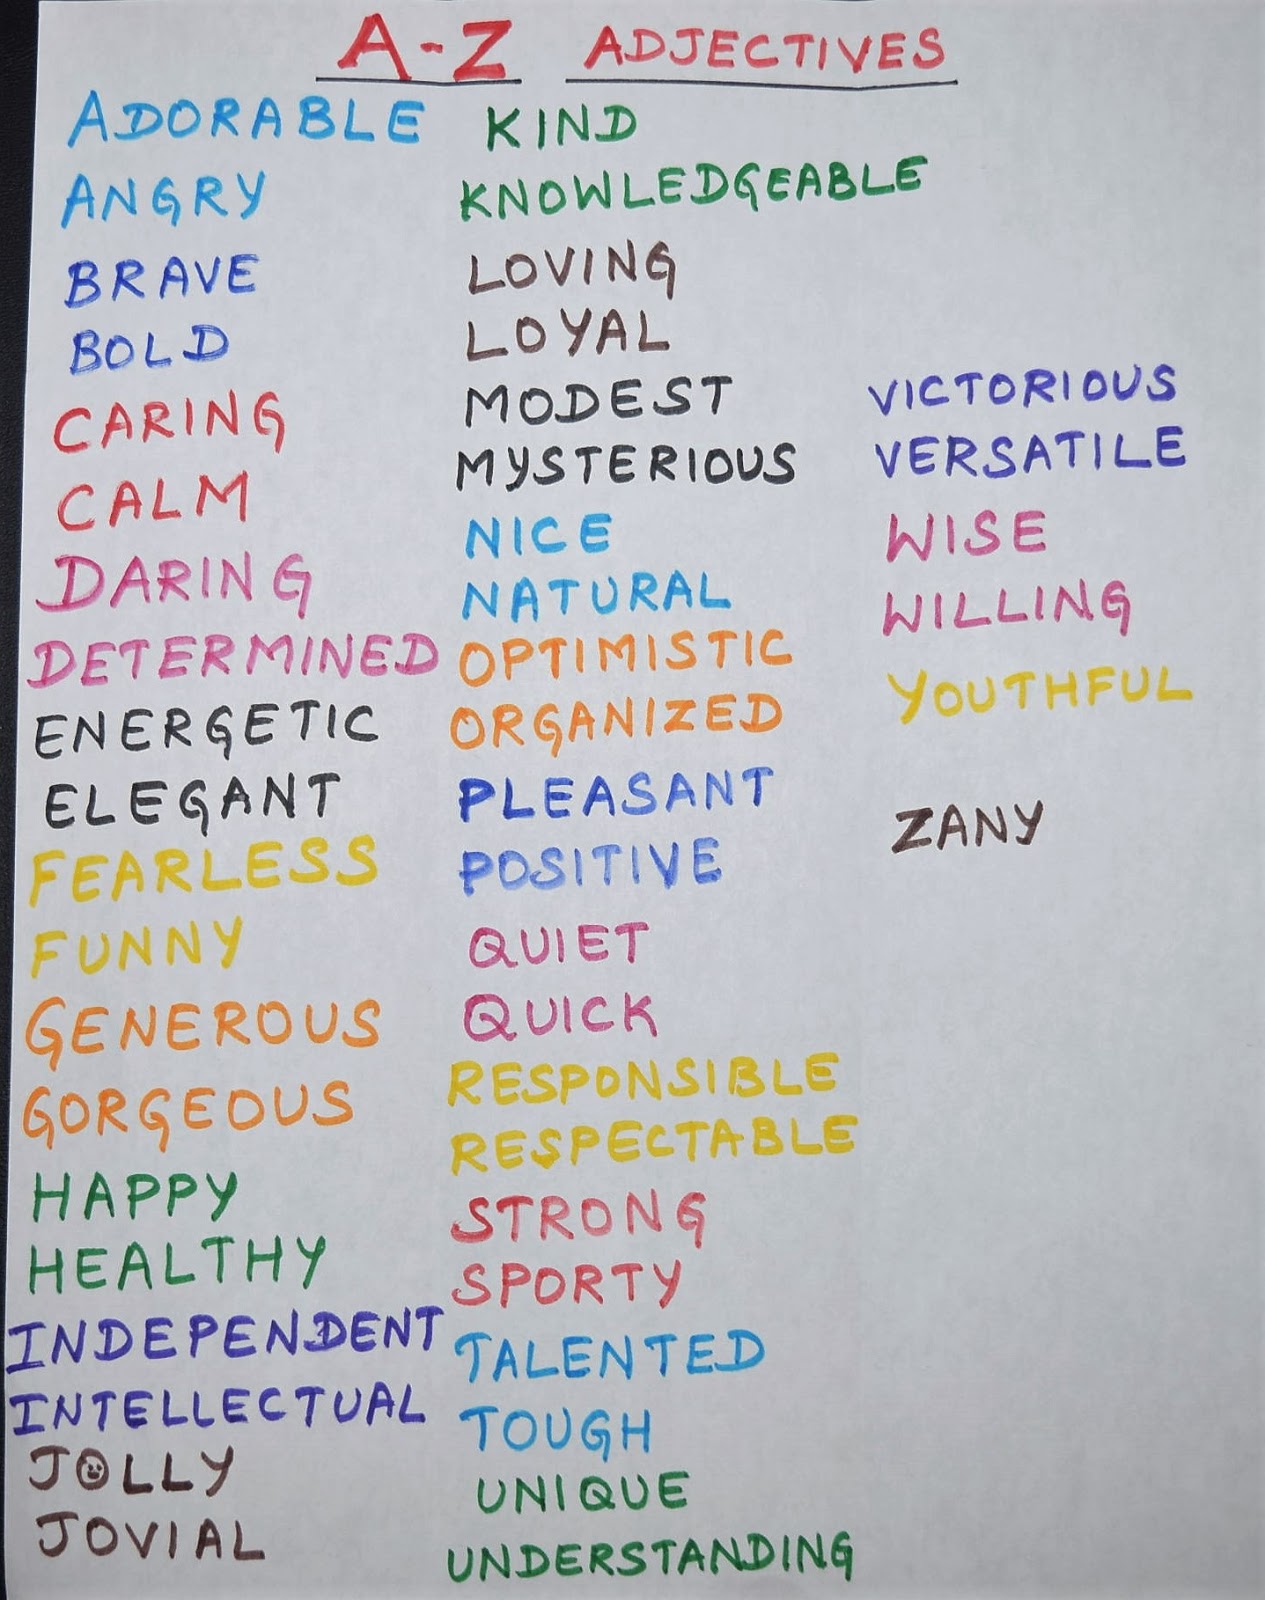 A-Z ADJECTIVES
ADORABLE
ANGRY
BRAVE
BOLD
CARING
CALM
DARING
DETERMINED
ENERGETIC
ELEGANT
FEARLESS
FUNNY
GENEROUS
GORGEOUS
HAPPY
HEALTHY
INDEPENDENT
INTELLECTUAL
JOLLY
JOVIAL
KIND
KNOWLEDGEABLE
LOVING
LOYAL
MODEST
MYSTERIOUS
NICE
NATURAL
OPTIMISTIC
ORGANIZED
PLEASANT
POSITIVE
QUIET
QUICK
RESPONSIBLE
RESPECTABLE
STRONG
SPORTY
TALENTED
TOUGH
UNIQUE
UNDERSTANDING
VICTORIOUS
VERSATILE
WISE
WILLING
YOUTHFUL
ZANY